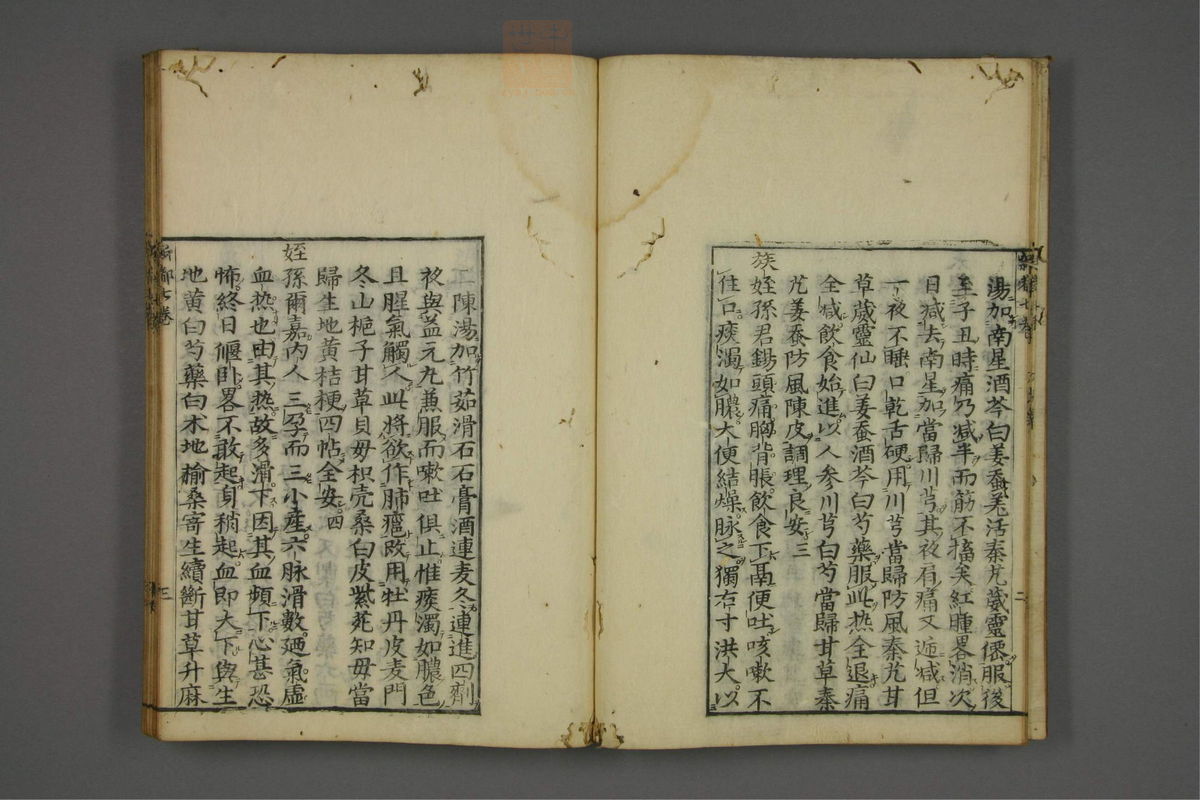 湯加南星酒芩白姜蚕羌活秦艽葳靈僊服後
至子丑時痛乃减半而筋不搐矣紅腫畧消次
日减去南星加當歸川芎其夜肩痛又逓减但
一夜不睡口乾舌硬用川芎當歸防風秦艽甘
草葳靈仙白姜蚕酒芩白芍藥服此热全退痛
全减飲食始進以人参川芎白芍當歸甘草秦
艽姜蚕防風陳皮調理良安三
族姪孫君錫頭痛胸背脹飲食下鬲便吐咳嗽不
住口痰濁如膿大便結燥脉之獨右寸洪大以
二陳湯加竹茹滑石石膏酒連麦冬連進四劑
夜與益元丸兼服而嗽吐俱止惟痰濁如膿色
且腥氣觸人此將欲作肺癰改用牡丹皮麦門
冬山梔子甘草貝母枳壳桑白皮紫菀知母當
歸生地黃桔梗四帖全安四
姪孫爾嘉内人三孕而三小産六脉滑數廼氣虛
血热也由其热故多滑下因其血頻下心甚恐
怖終日偃卧畧不敢起身稍起血即大下與生
地黃白芍藥白术地榆桑寄生續斷甘草升麻
新都七卷
二
三